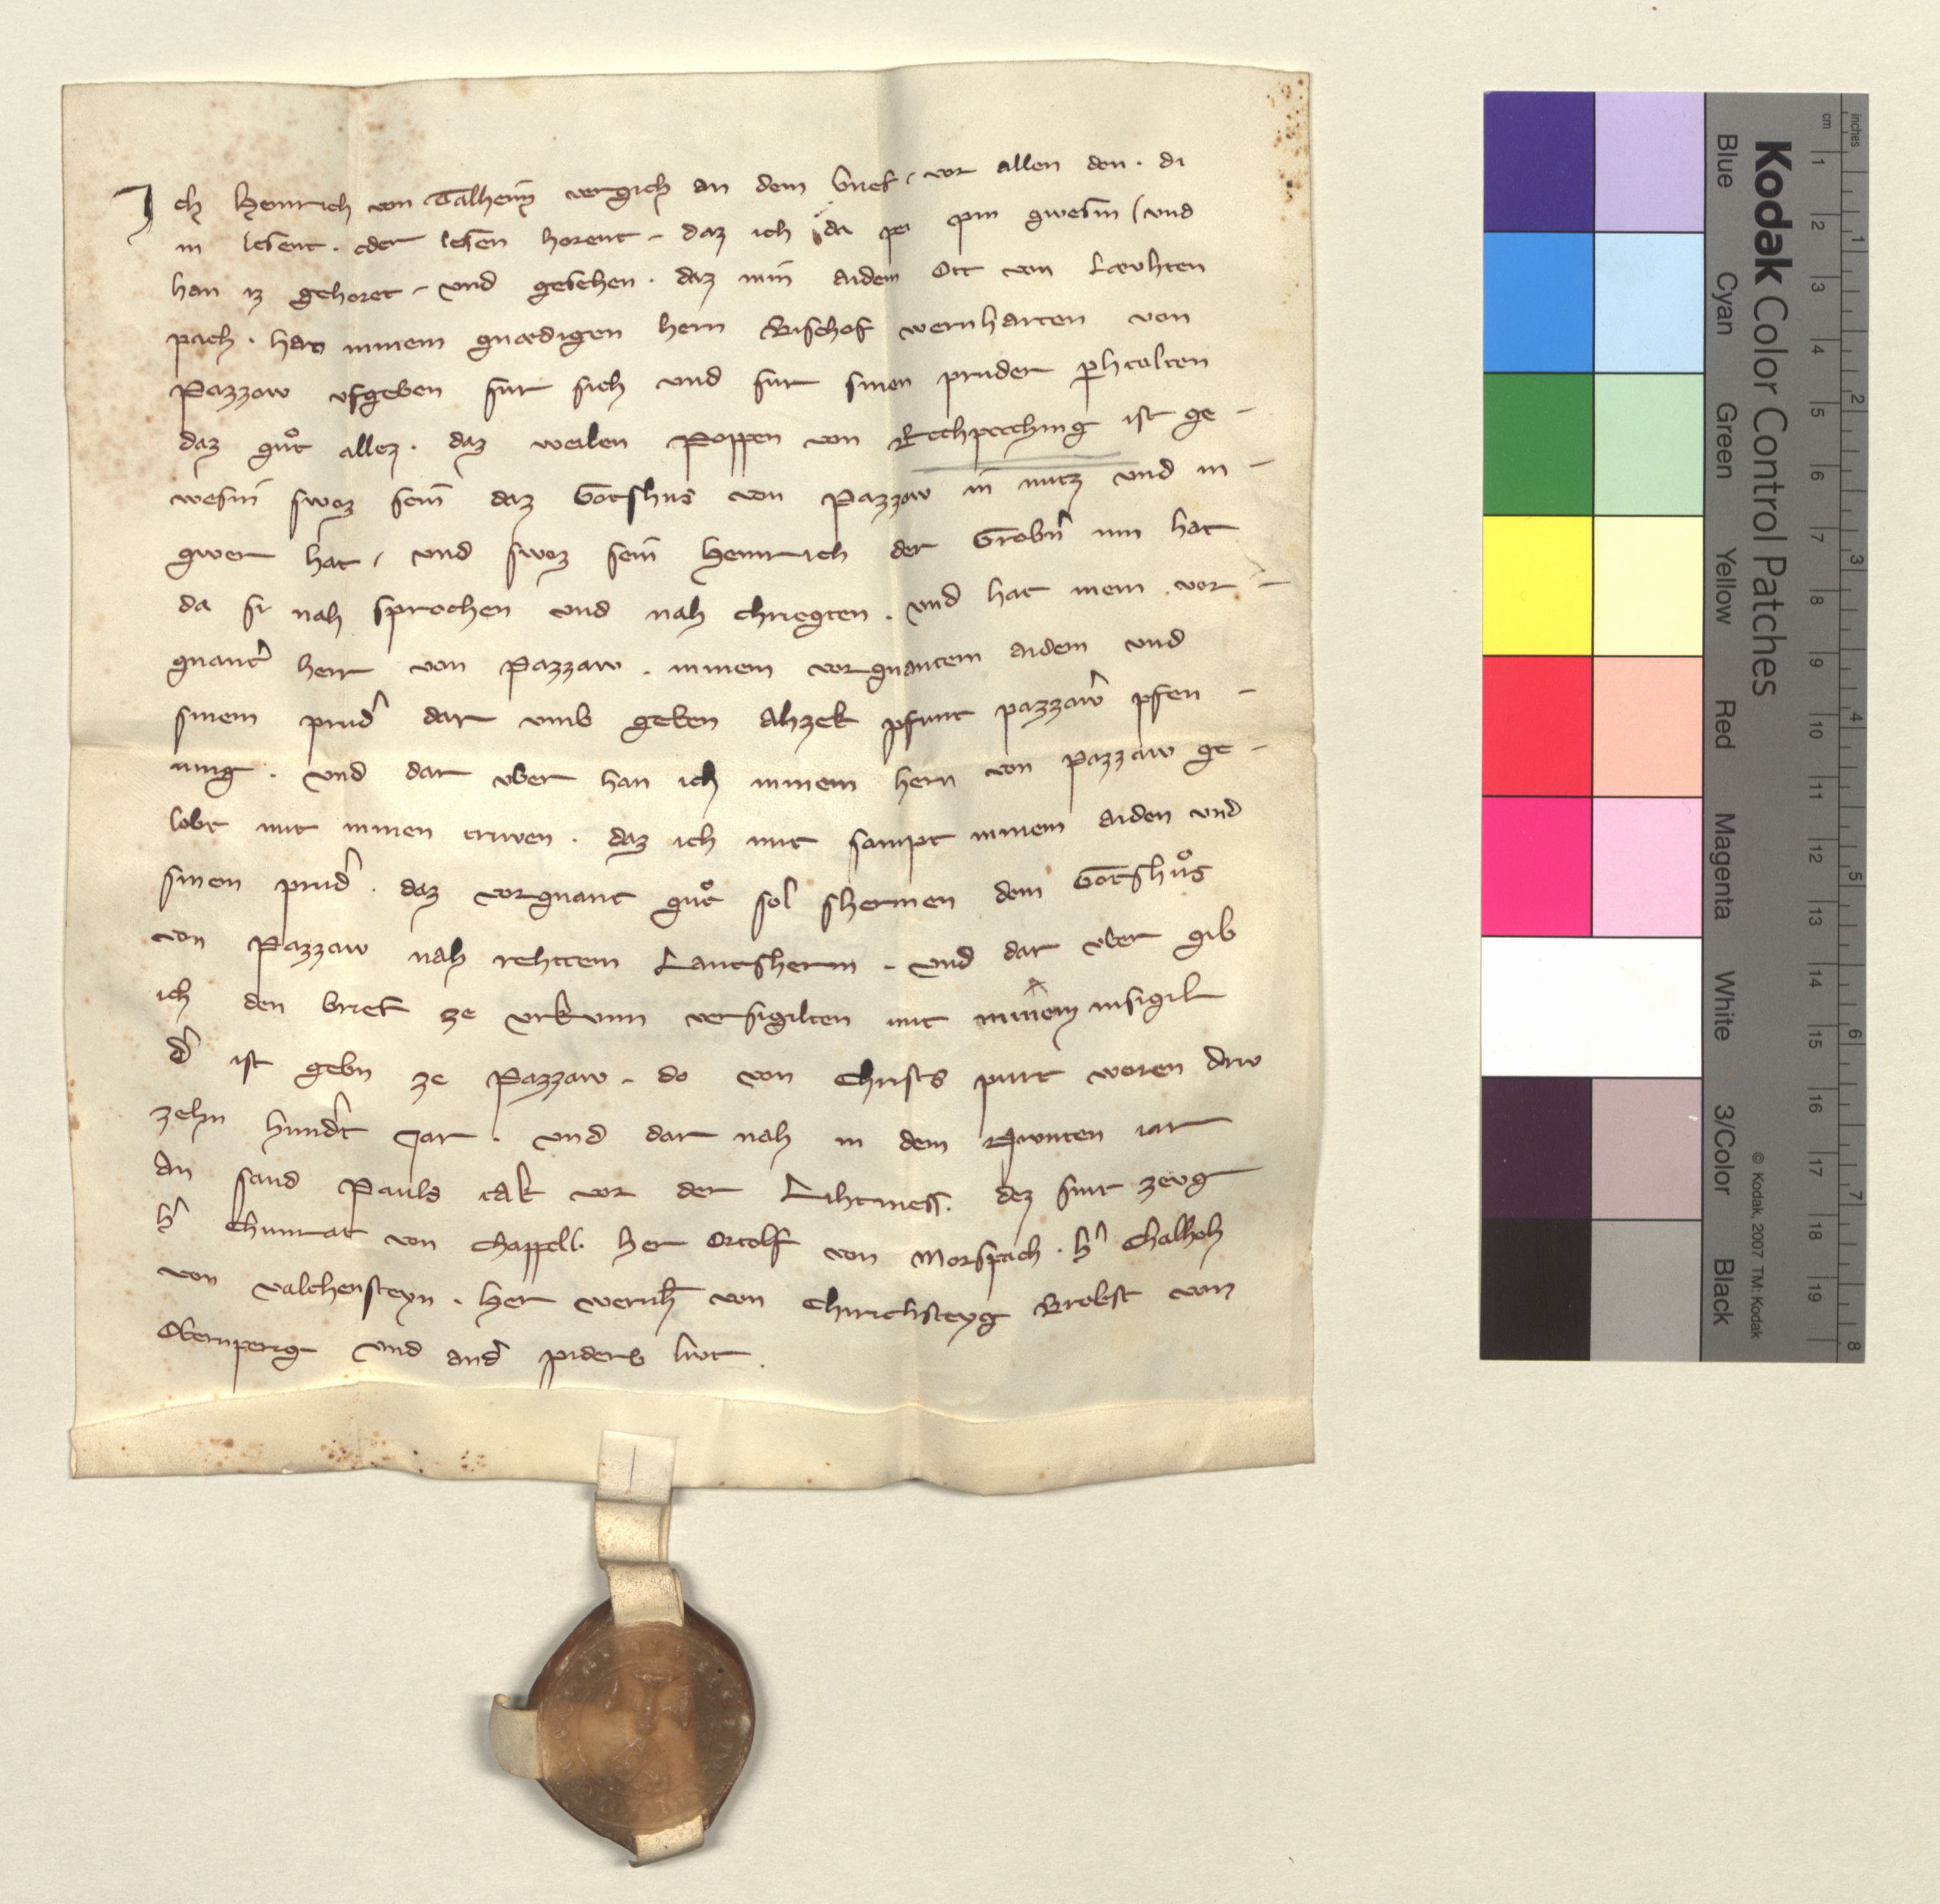 Ich Heinrich von Talheim vergich an dem brief, vor allen den. di
in lesent. oder lesen horent – daz ich da pei pin gwesin (und
han iz gehoret – und gesehen. daz min aidem Ott von Lævhten
pach. hat minem gnædigen hern Bischof wernharten von
Pazzow ufgeben fur sich und fur sinen pruder p̄htolten
daz guͦt allez. daz weilen Poppen von Rechpæching ist ge –
wesin swoz sein daz Gotshus von Pazzow in nutz und in –
gwer hat, und swoz sein Heinrich der Grobn̄ inn hat
da si nah sprochen und nah chriegten. und hat mein vor –
gnant̄ herr von Pazzaw. minem vorgnantem aidem und
sinem prud̄ dar umb geben Ahzek pfunt pazzaw̄ pfen –
ning. und dar uber han ich minem hern von Pazzaw ge –
lobt mit minen triwen. daz ich mit sampt minem aiden und
sinem prud̄. daz vorgnant guͦt sol shermen dem Gotshuͦs
von Pazzaw nah rehttem Lantsherm – und dar uber gib
ich den brief ze urkunn versigilten mit minem insigil
d̄ ist gebn ze Pazzaw – do von Christs purt woren driw
zehn hund̄t Jar. und dar nah in dem Niwnten iar
An sand Pauls tak vor der Lihtmess. dez sint zevg
h̄ Chunrat von Chappell. her Ortolf von Morspach. h̄ Chalhoh
von valchensteyn. her wernh̄ von Chirichsteyg Brobst von
Obernperig und and̄ piderb livt.
Kodak Color Control Patches
Blue Cyan Green Yellow Red Magenta White 3/Color Black
© Kodak, 2007 TM: Kodak
cm 1 2 3 4 5 6 7 8 9 10 11 12 13 14 15 16 17 18 19
inches 1 2 3 4 5 6 7 8